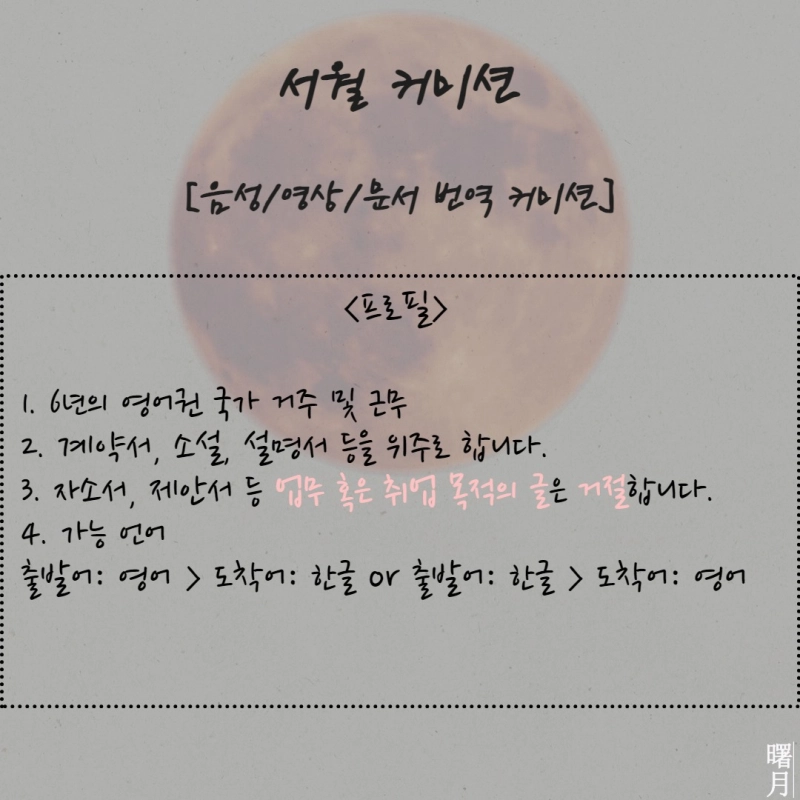 서월 커미션
[음성/영상/문서 번역 커미션]
<프로필>
1. 6년의 영어권 국가 거주 및 근무
2. 계약서, 소설, 설명서 등을 위주로 합니다.
3. 자소서, 제안서 등 업무 혹은 취업 목적의 글은 거절합니다.
4. 가능 언어
출발어: 영어 > 도착어: 한글 or 출발어: 한글 > 도착어: 영어
曙月